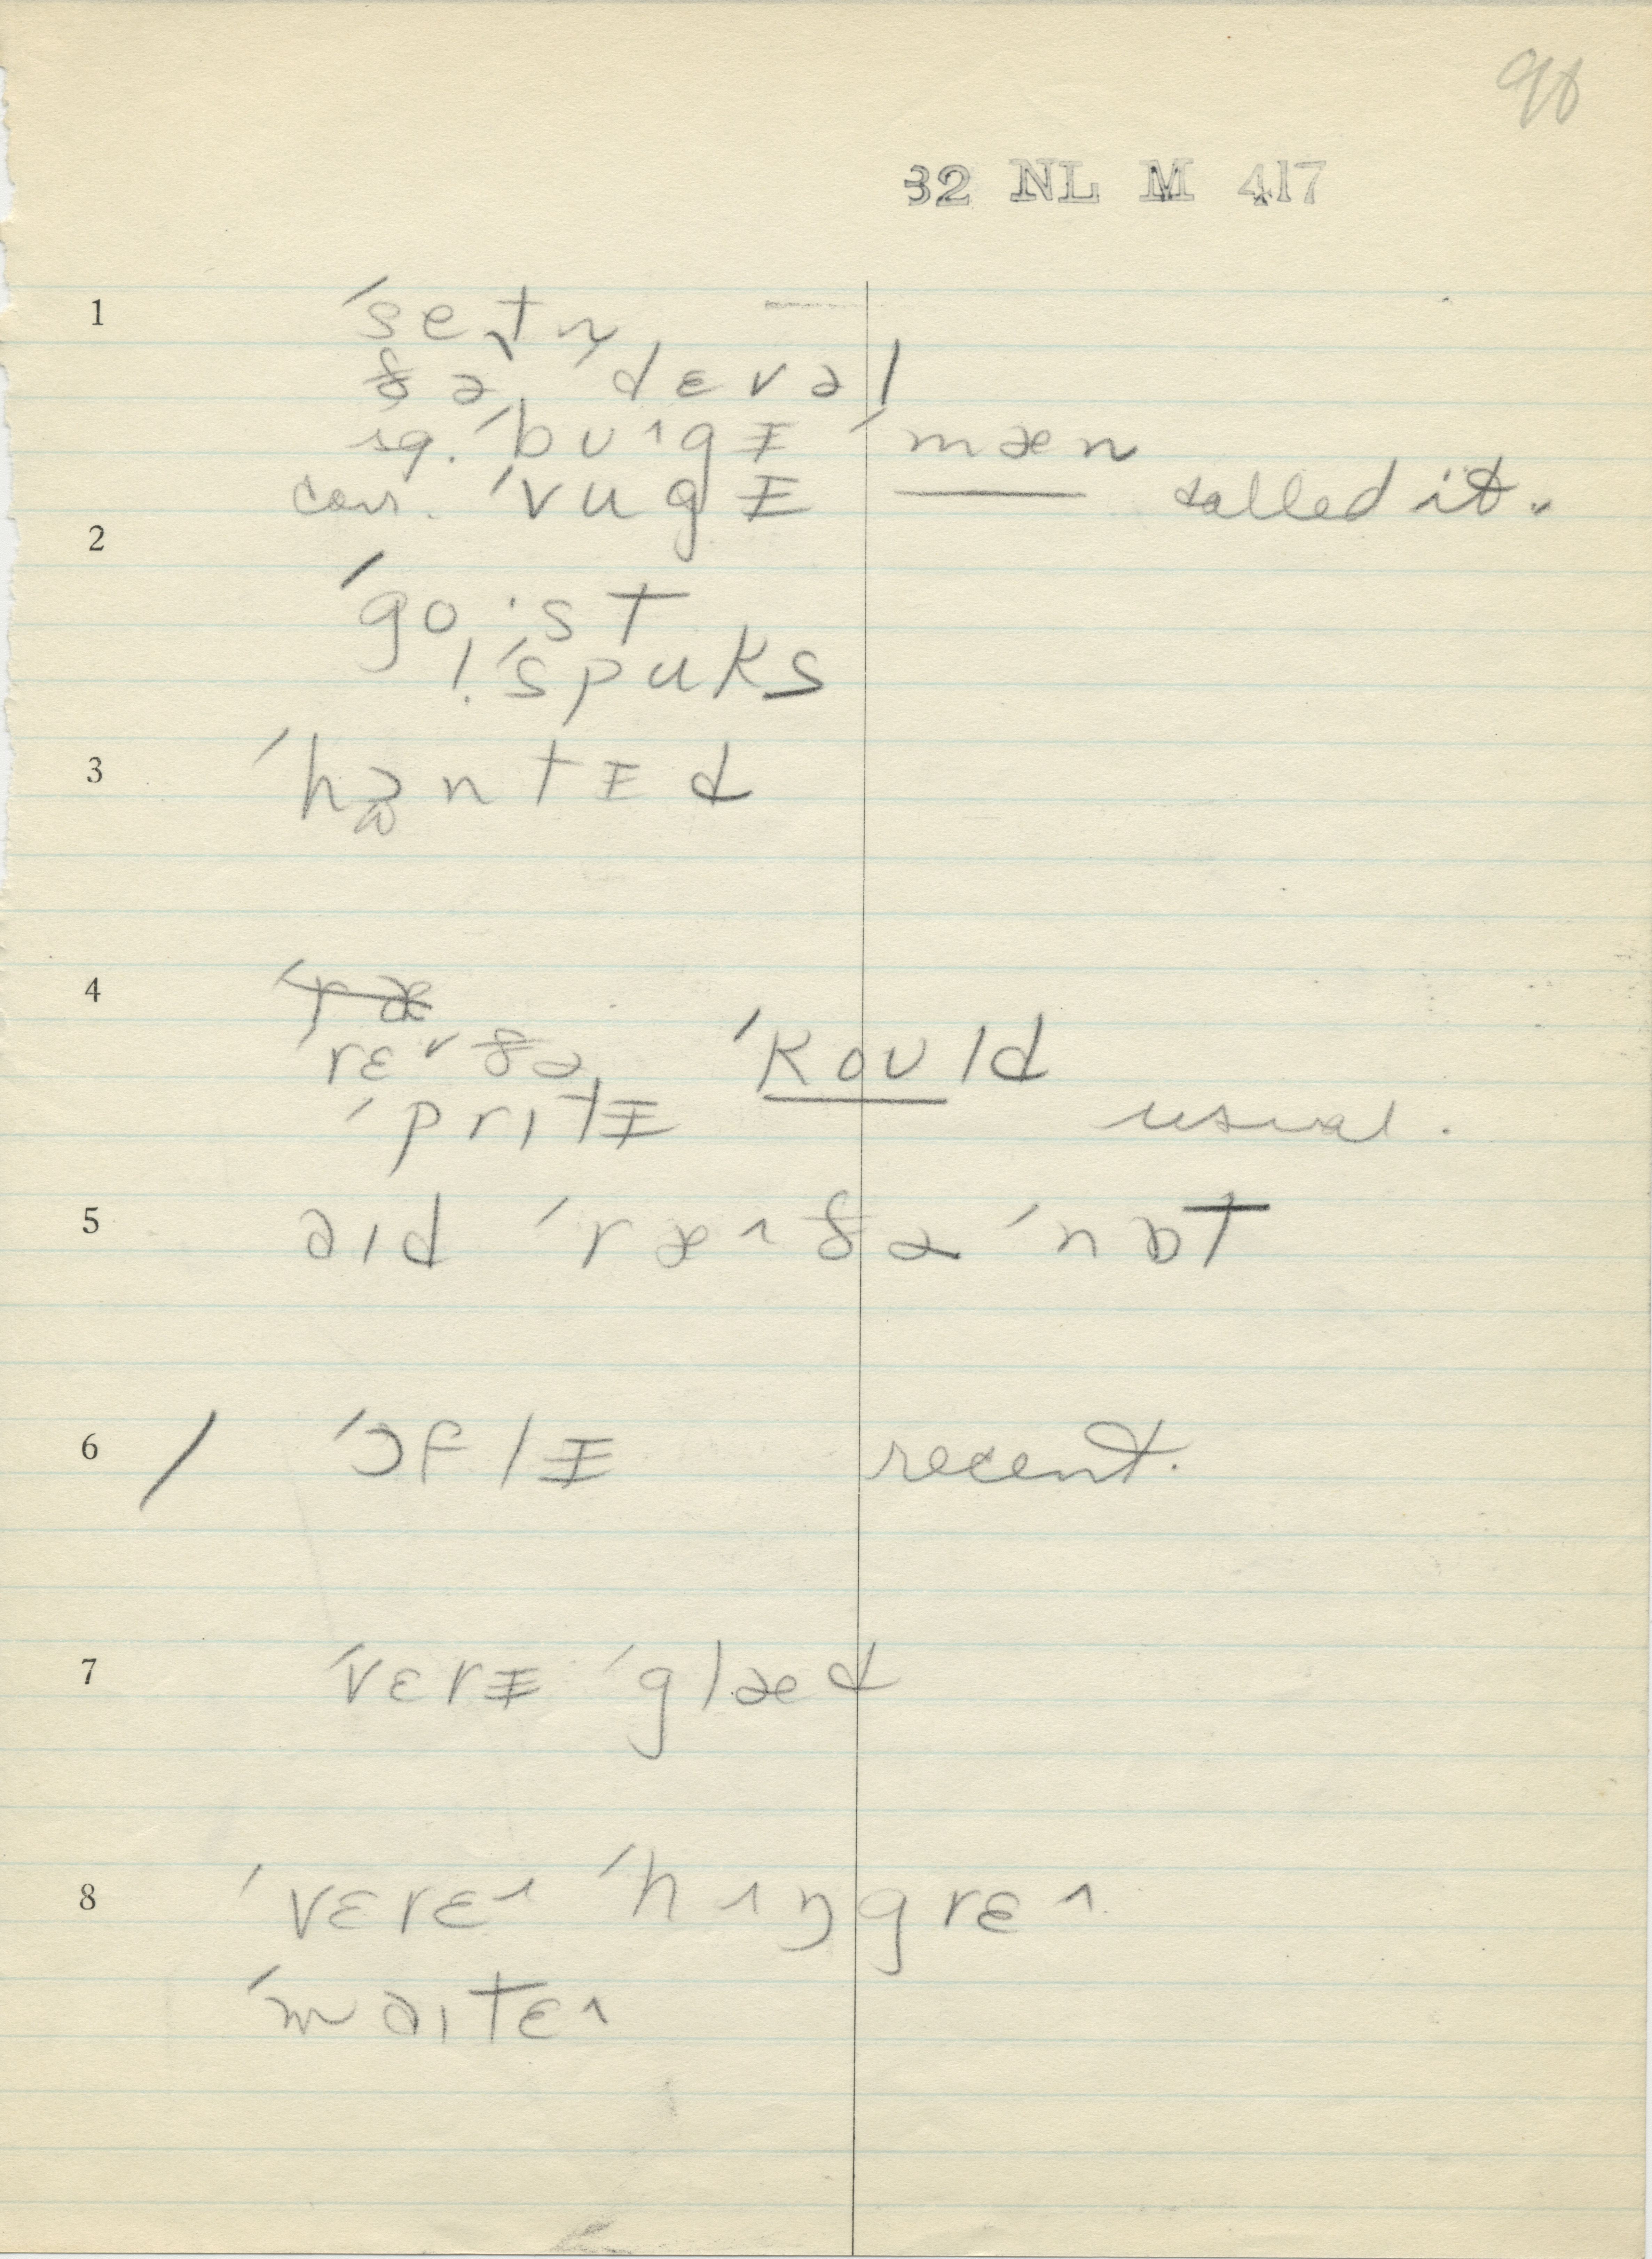 90
32 NL M 417
1
ˈsetn̩
ðə ˈdɛvəl
sg. ˈbʊɪgɪ̵ ˈmæn
cor. ˈvugɪ̵ —— called it.
2
ˈgoˑst
! ˈspuks
3
ˈhɔntɪ̵d
4
ˈræ
ˈrɛˇðə ˈkoʊld
ˈprɪtɪ̵ usual.
5
aɪd ˈræɪðə ˈnɒt
6 / ˈɔflɪ̵ recent.
7
ˈvɛrɪ̵ ˈglæd
8
ˈvɛrɛɪ ˈhɪŋgrɛɪ
ˈmaɪtɛɪ